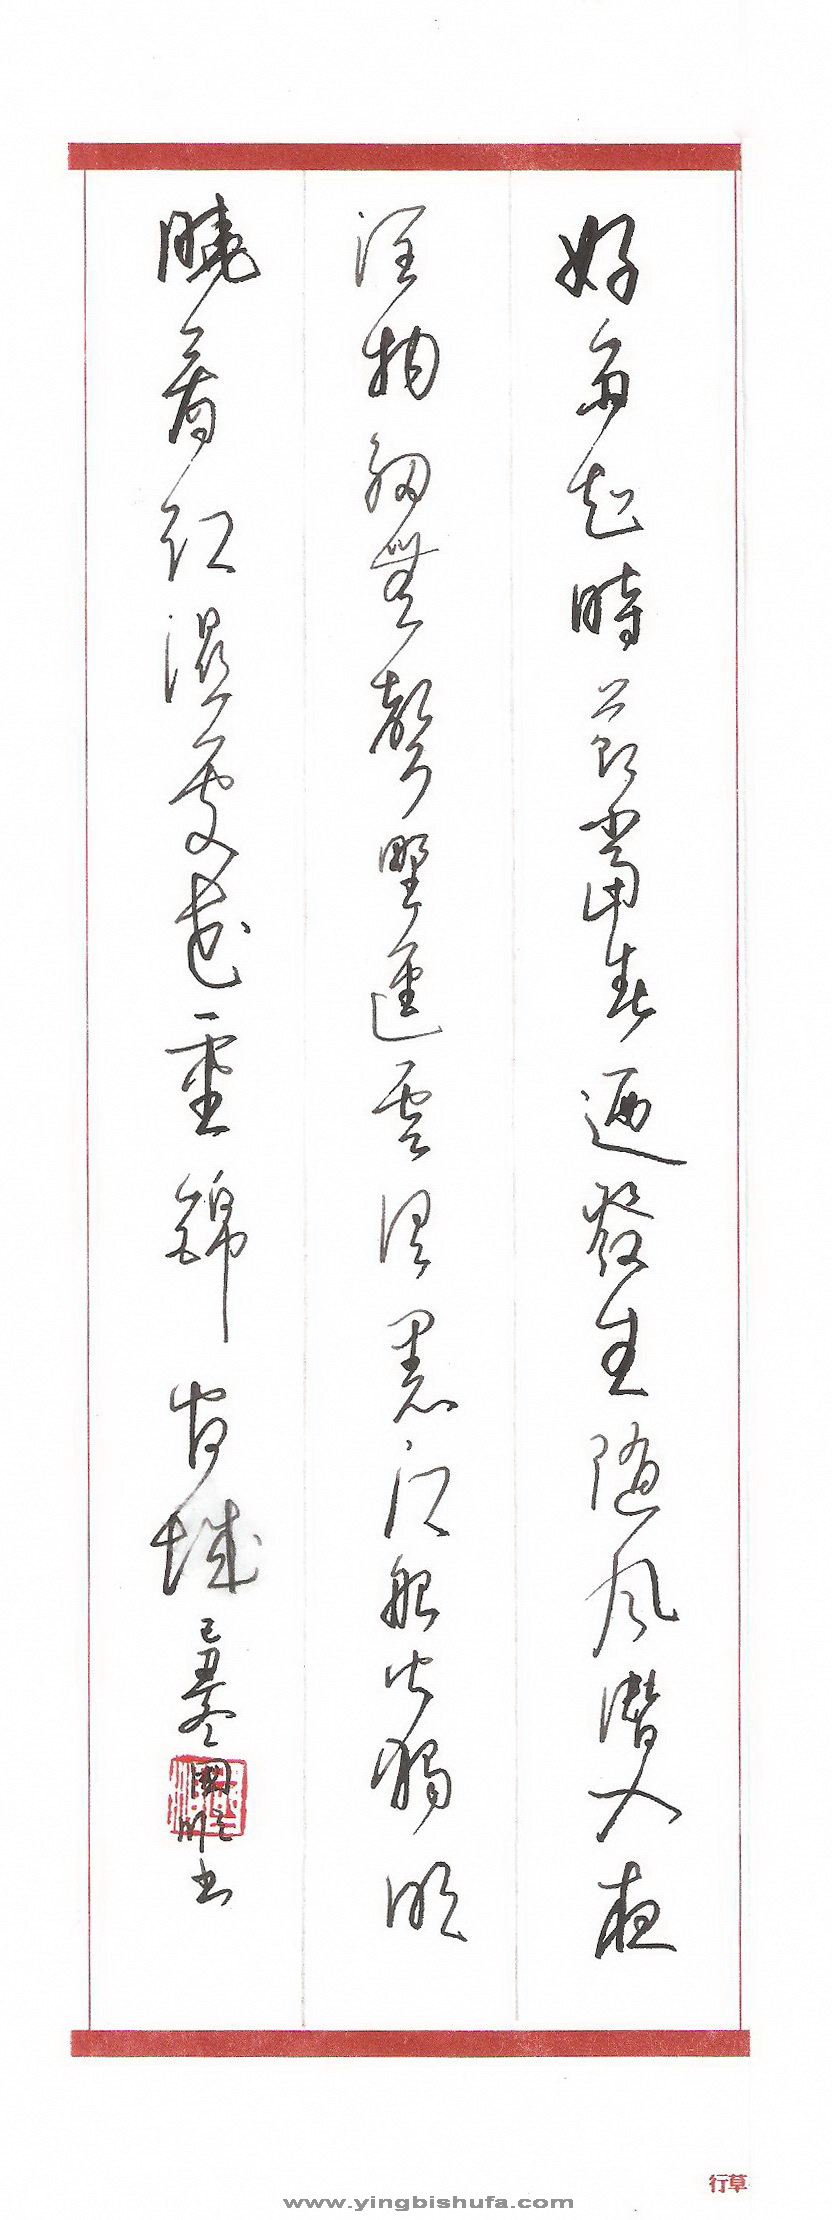 好雨知時節當春迺發生隨風潛入夜
潤物細無聲野逕雲俱黑江船火獨明
曉看紅濕處花重錦官城己丑冬國順书
行草
www.yingbishufa.com